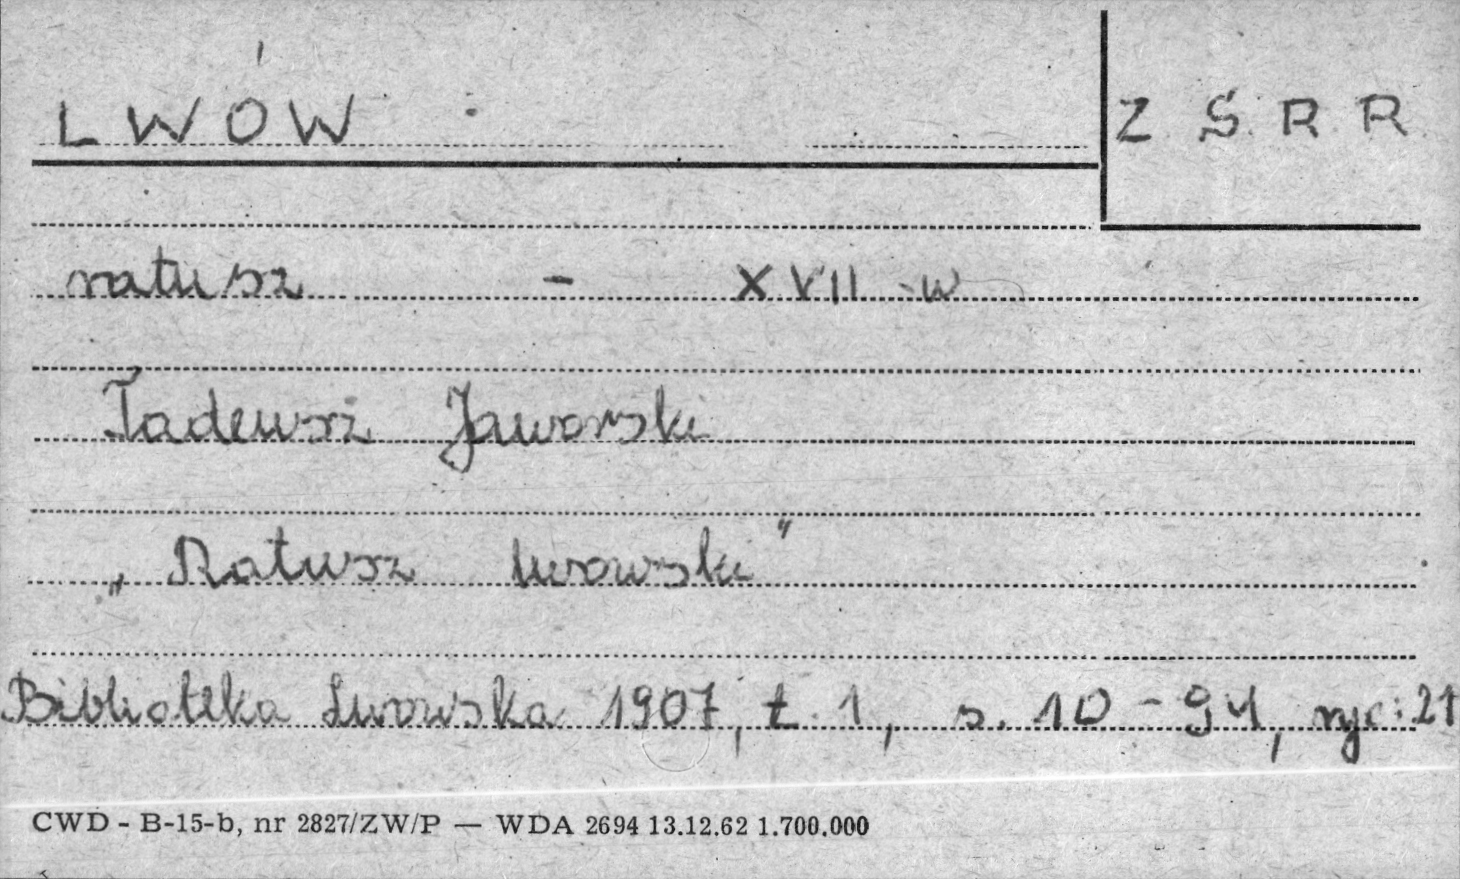 LWÓW
ZSRR
ratusz - XVII w
Tadeusz Jaworski
„Ratusz lwowski"
Biblioteka Lwowska 1907, t. 1, s. 10-94, ryc: 21
CWD - B-15-b, nr 2827/ZW/P — WDA 2694 13.12.62 1.700.000